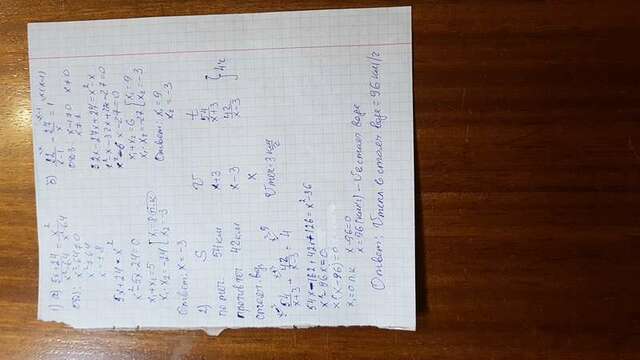 1) а) (5x+24)/(x²-64) = x²/(x²-64)
x²-64≠0
x²≠64
x=±8
5x+24=x²
x²-5x-24=0
x₁+x₂=5
x₁·x₂=-24
x₁=8 п.к
x₂=-3
Ответ: x=-3
б) - 27/x = 1
x-1≠0 x≠0
x≠1
x²-6x-27=0
x₁+x₂=6
x₁·x₂=-27
x₁=9
x₂=-3
Ответ: x₁=9
x₂=-3
2) S V t
по теч. 54км x+3 54/(x+3)
против теч 42км x-3 42/(x-3) 4ч
стояч. вод x
Vтеч=3 км/ч
54/(x+3) + 42/(x-3) = 4
54x-162+42x+126=x²-36
x²-96x=0
x(x-96)=0
x₁=0 п.к x-96=0
x=96(км/ч) – V в стояч воде
Ответ: Vтепл. в стояч. воде=96 км/ч